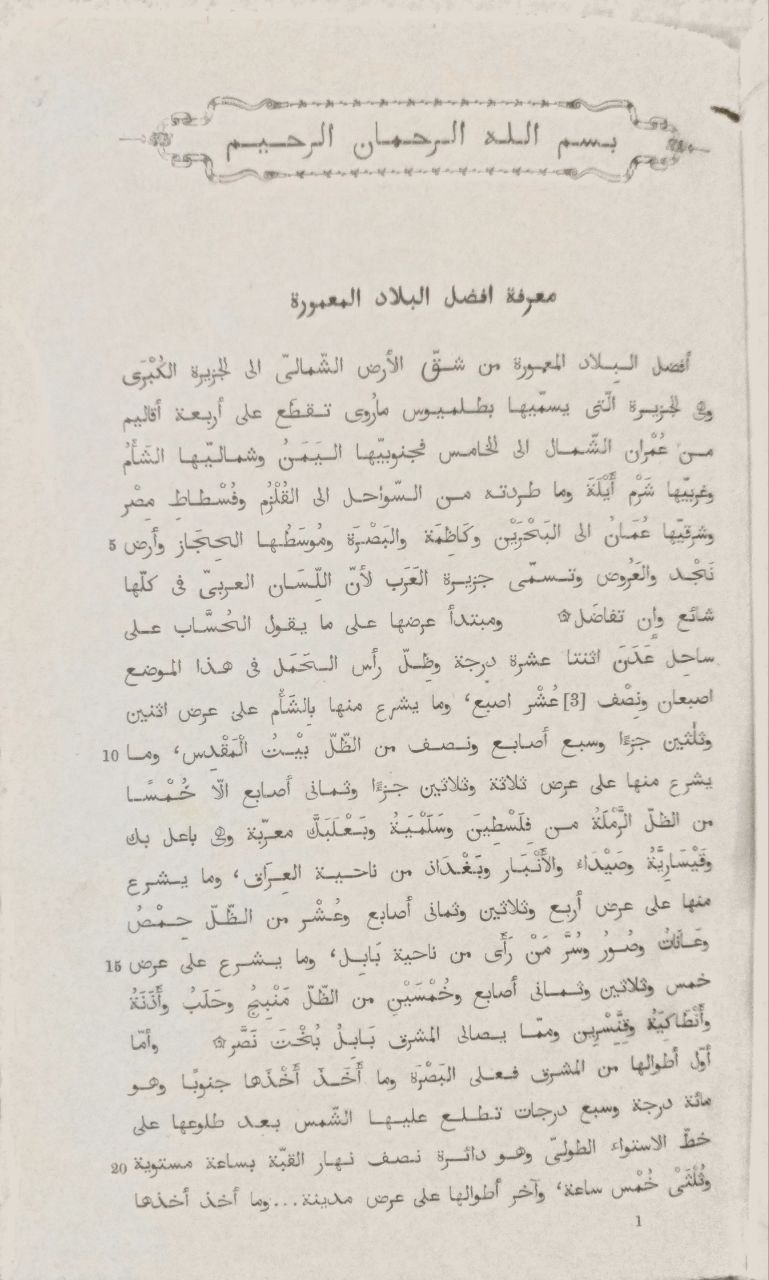 بسم الله الرحمان الرحيم
معرفة افضل البلاد المعمورة
أفضل البلاد المعمورة من شقّ الأرض الشّماليّ الى الجزيرة الكُبْرَى
وهى الجزيرة الّتى يسمّيها بطلميوس مارُوى تقطَع على أربعة أقاليم
من عُمْران الشّمال الى الخامس فجنوبيّها اليَمَنُ وشماليّها الشَأْمُ
وغربيّها شَرْم أَيْلَةَ وما طردته من السّواحل الى القُلْزُم وفُسْطاطِ مِصْر
وشرقيّها عُمَانُ الى البَحْرَيْن وكَاظِمَة والبَصْرَة ومُوَسَطُها الحِجَاز وأرض 5
نَجْد والعَرُوض وتسمّى جزيرة العَرَب لأنّ اللِّسَان العربىّ فى كلّها
شائع وإن تفاضَل۞ ومبتدأ عرضها على ما يقول الحُسَّاب على
ساحِل عَدَنَ اثنتا عشرة درجة وظِلّ رأس الحَمَل فى هذا الموضع
اصبعان ونِصْف [3] عُشْر اصبَع، وما يشرع منها بِالشَأْم على عرض اثنين
وثلٰثين جزءًا وسبع أصابع ونصف من الظّلّ بيْتُ الْمَقْدِس، وما 10
يشرع منها على عرض ثلاثة وثلاثين جزءًا وثمانى أصابع الّا خُمْسًا
من الظلّ الرَّمْلَةُ من فِلَسْطِينَ وسَلَمْيَةُ وبَعْلَبَكَّ معرّبة وهى باعل بك
وقَيْسَارِيَّةُ وصَيْدَاء والأَنْبَار وبَغْدَاذ من ناحية العِرَاق، وما يشرع
منها على عرض أربع وثلاثين وثمانى أصابع وعُشْر من الظّلّ حِمْصُ
وعَانَاتُ وصُورُ وسُرَّ مَنْ رَأَى من ناحية بَابِل، وما يشرع على عرض 15
خمس وثلاثين وثمانى أصابع وخُمْسَيْنِ من الظّلّ مَنْبِجُ وحَلَبُ وأَذَنَةُ
وأَنْطَاكِيَةُ وقِنَّسْرِين وممّا يصالى المشرق بَابِلُ بُخْتَ نَصَّر۞ وأمّا
أوّل أطوالها من المشرق فعلى البَصْرَة وما أَخَذَ أَخْذَها جنوبًا وهو
مائة درجة وسبع درجات تطلع عليها الشّمس بعد طلوعها على
خطّ الاستواء الطولىّ وهو دائرة نصف نهار القبّة بساعة مستوية 20
وثُلْثَىْ خُمْس ساعة، وآخر أطوالها على عرض مدينة...وما أخذ أخذها
1